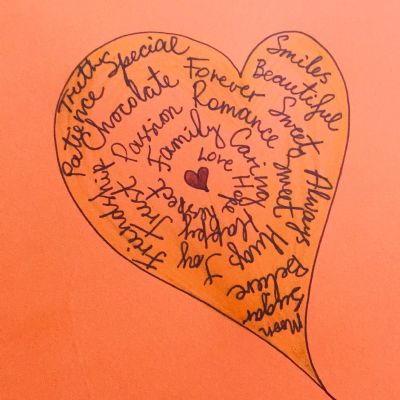 Truth Special
Patience Chocolate Forever Smiles
Beautiful
Romance Sweet
Passion Family Caring
Love
Hope
Friendship Trust Respect
Always
Happy Hugs
Joy
Believe
Sugar
Moon